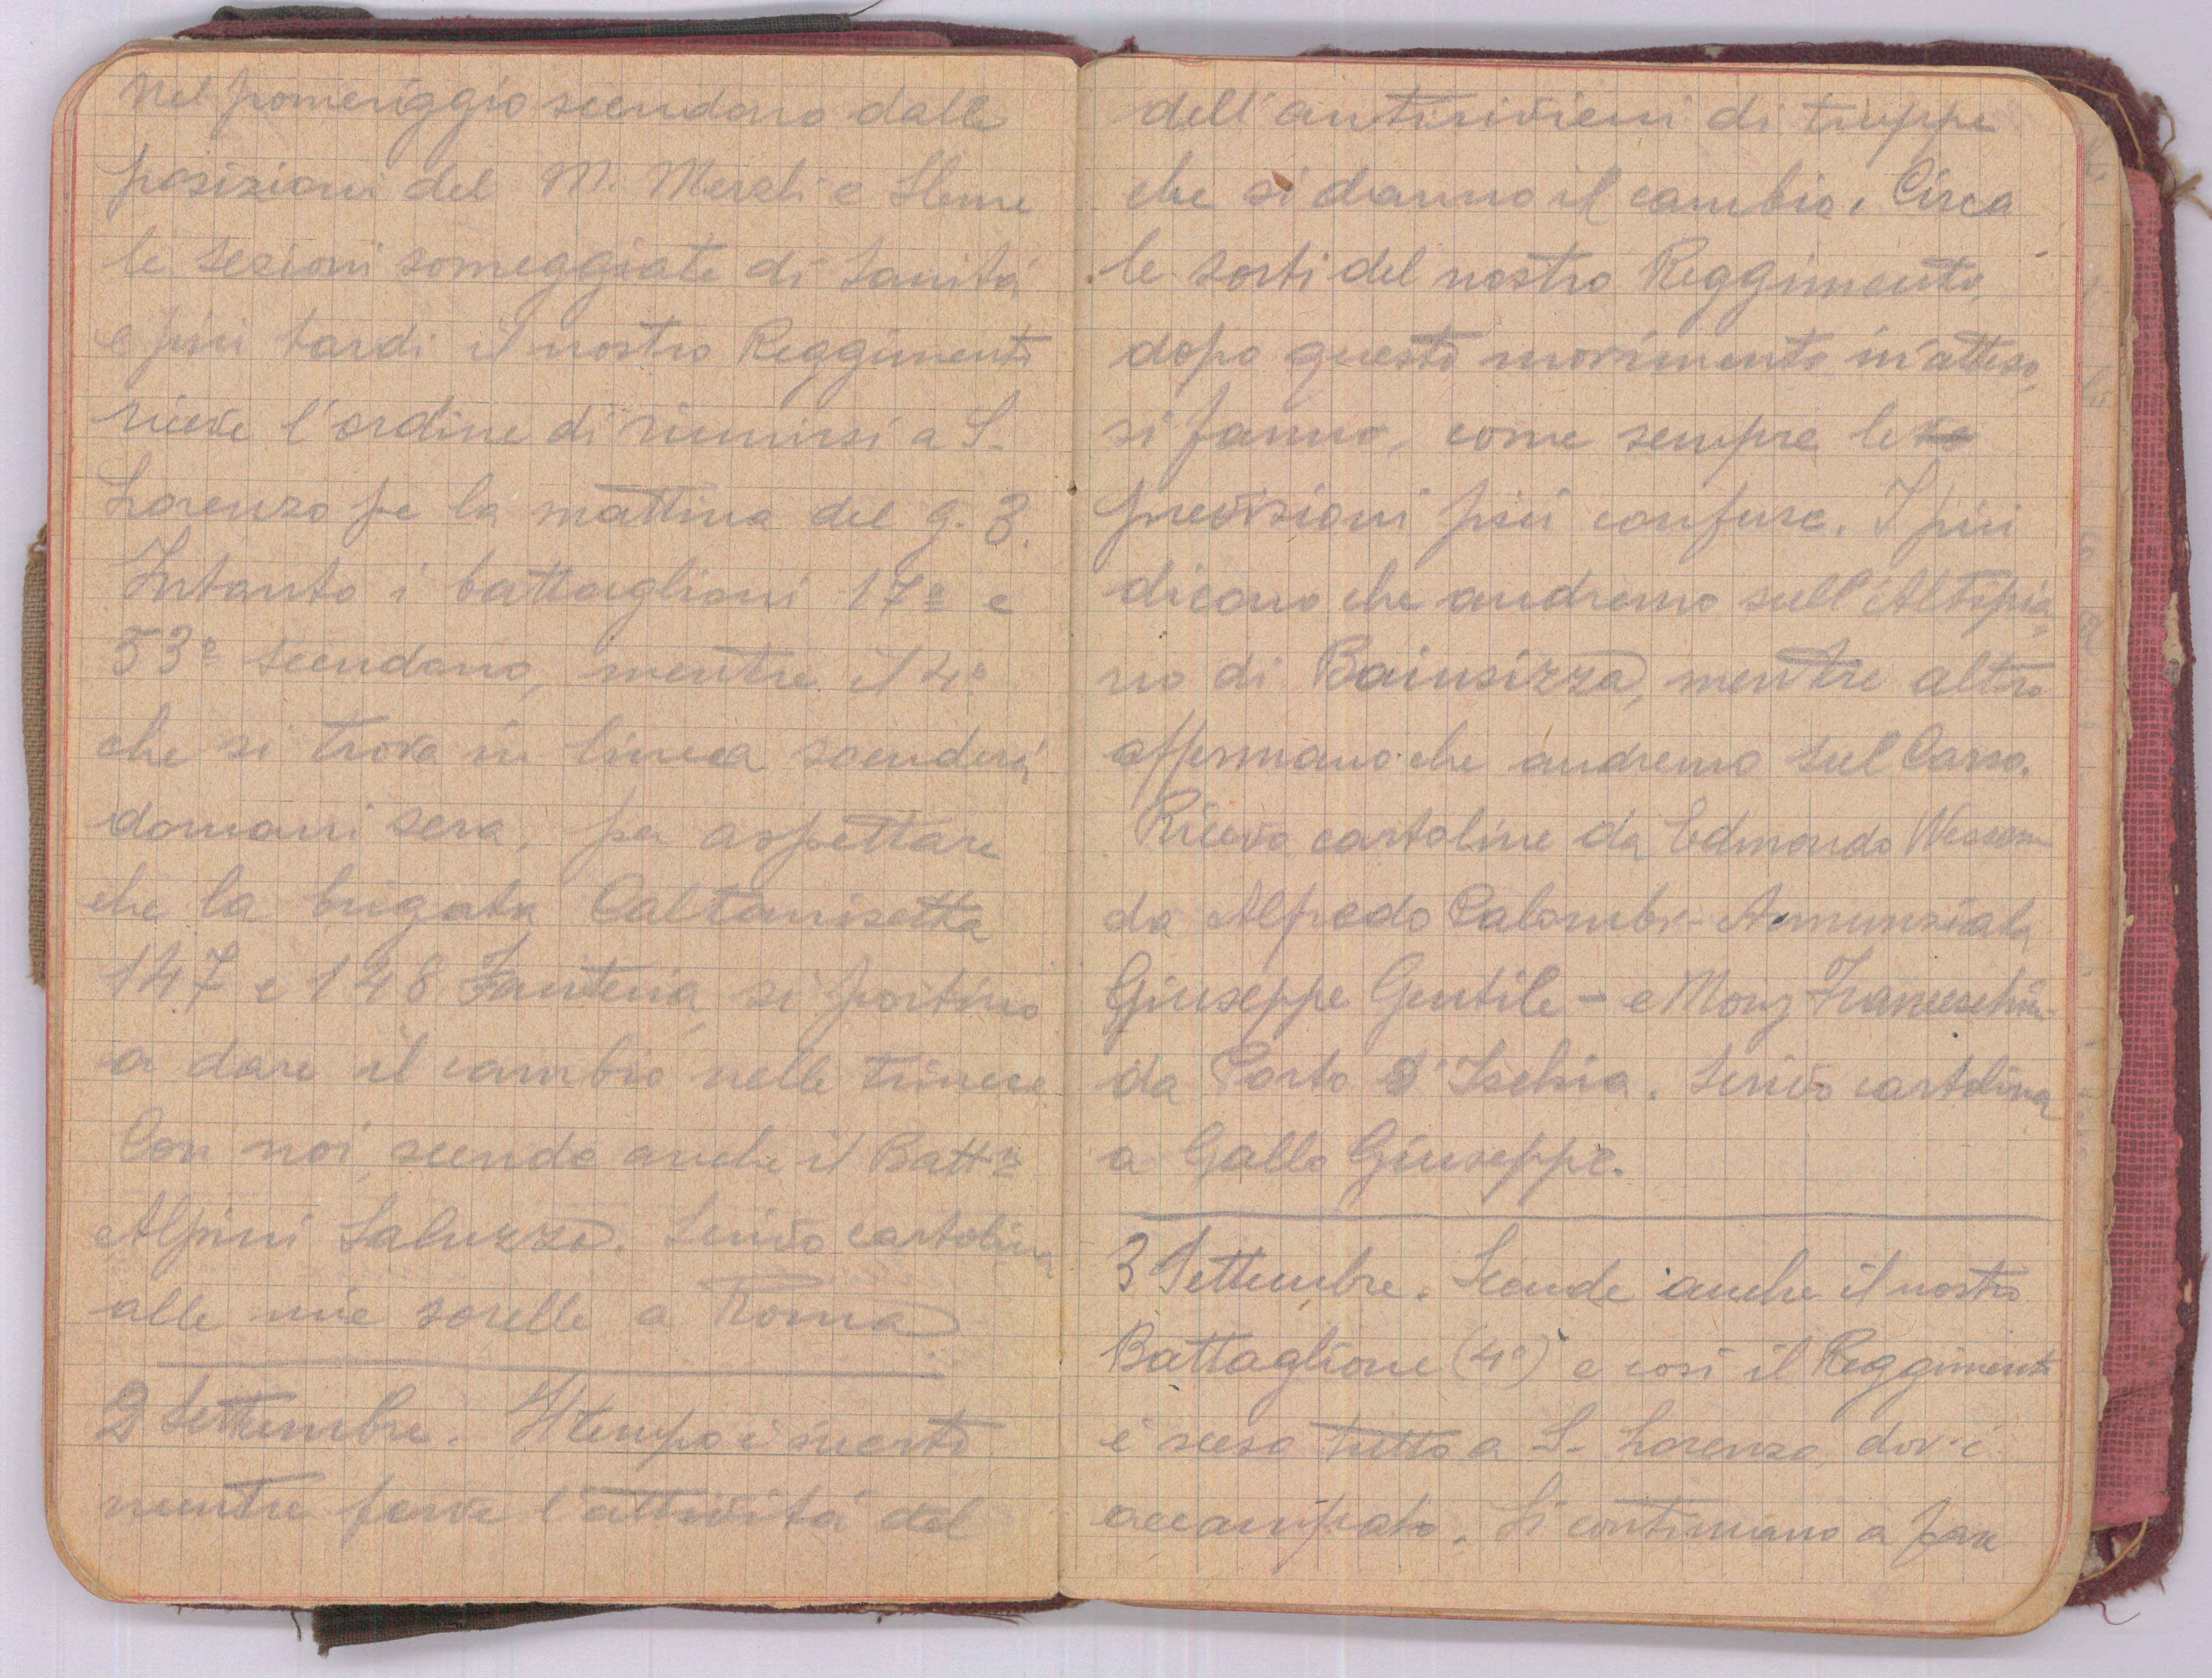 Nel pomeriggio scendono dalle
posizioni del M. Merzli e Sleme
le sezioni someggiate di Sanità
e più tardi il nostro Reggimento
riceve l'ordine di riunirsi a S.
Lorenzo pe la mattina del g. 3.
Intanto i battaglioni 17º e
53º scendono, mentre il 4º
che si trova in linea scenderà
domani sera, per aspettare
che la brigata Caltanisetta
147 e 148 Fanteria, si portino
a dare il cambio nelle trincee
Con noi, scende anche il Battº
Alpini Saluzzo. Scrivo cartolina
alle mie sorelle a Roma
2 Settembre. Il tempo è incerto
mentre ferve l'attività del
dell'antirivieni di truppe
che si danno il cambio. Circa
le sorti del nostro Reggimento,
dopo questo movimento inatteso,
si fanno, come sempre le
previsioni più confuse. I più
dicono che andremo sull'Altopia
no di Bainsizza, mentre altro
affermano che andremo sul Carso.
Ricevo cartoline da Edmondo
da Alfredo Calombr - Annunziata
Giuseppe Gentile - e Monz Franceschini
da Porto d'Ischia. Scrivo cartolina
a Gallo Giuseppe.
3 Settembre. Scende anche il nostro
Battaglione (4º) e così il Reggimento
è sceso tutto a S. Lorenzo, dov'è
accampato. Si continuano a fare